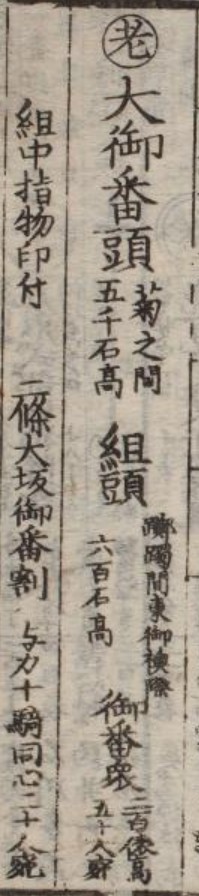 老
大御番頭
菊之間
五千石高
組頭
躑躅間東御襖際
六百石高
御番衆
二百俵高
五十人宛
組中指物印付
二條大坂御番割
与力十騎同心二十人宛